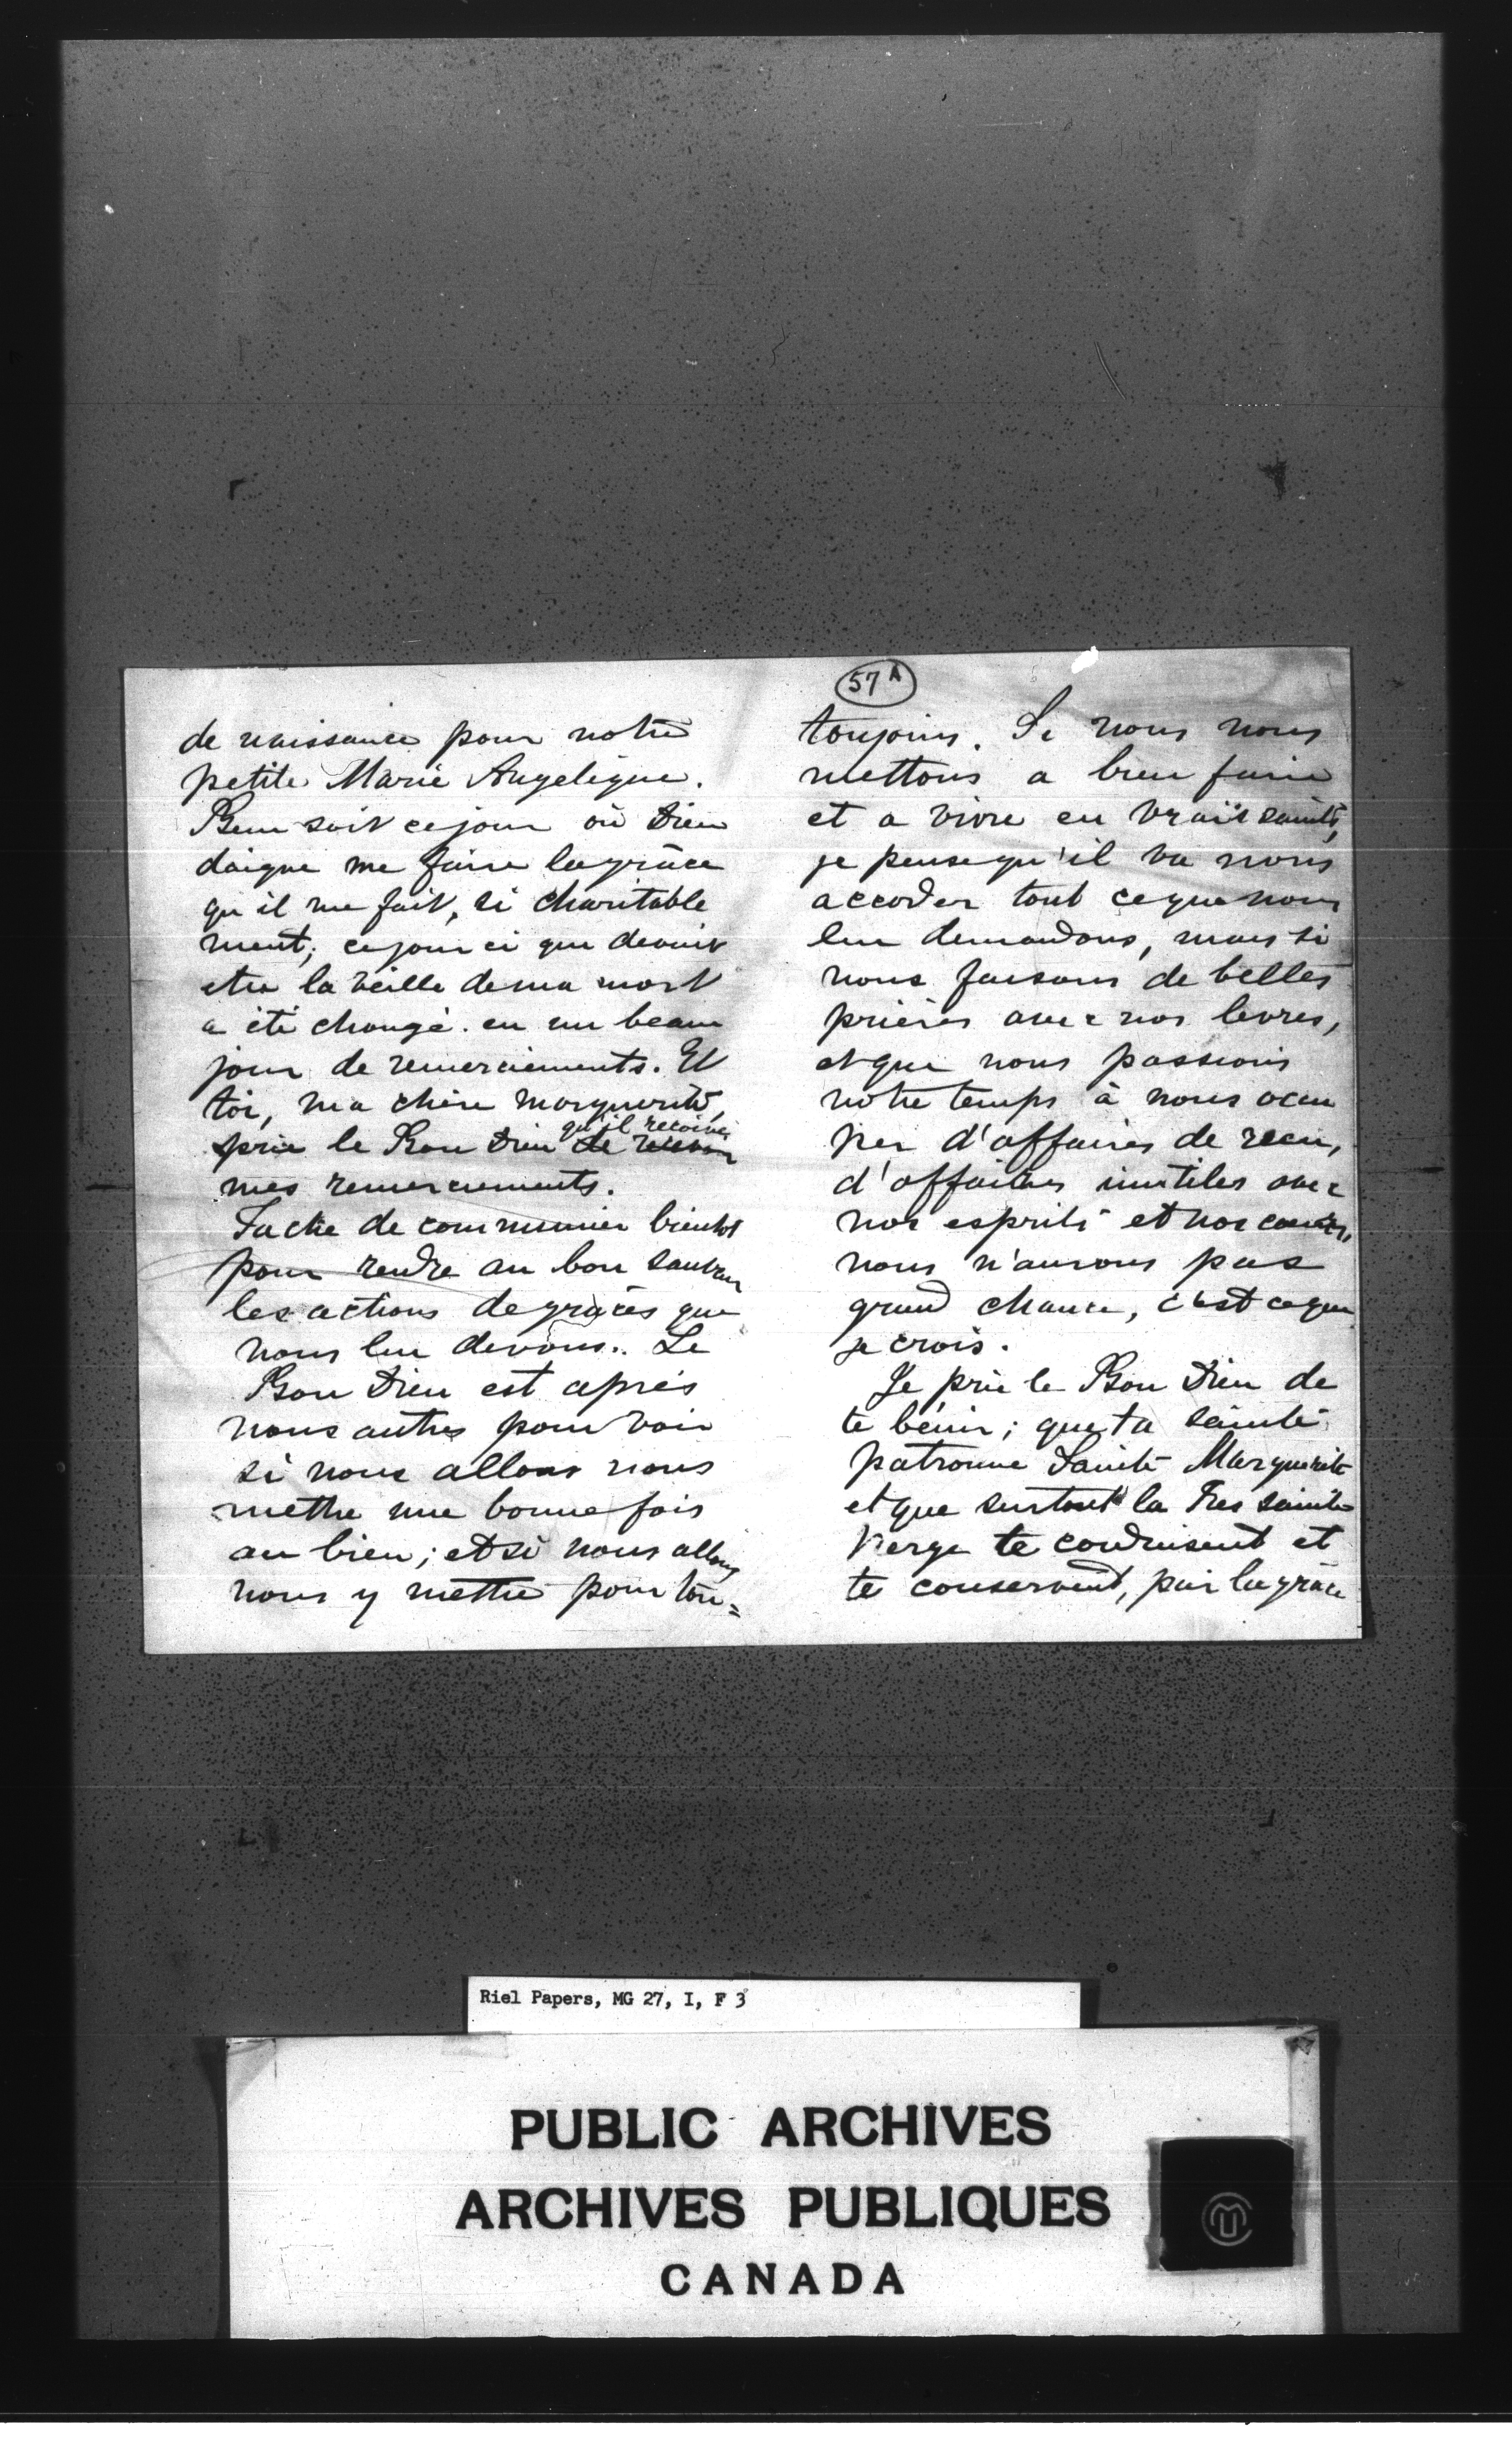 57 A
de naissance pour notre
petite Marie Angelique.
Beni soit ce jour où Dieu
daigne me faire la grâce
qu'il me fait, si charitable
ment; ce jour ci qui devait
etre la veille de ma mort
a été changé en un beau
jour de remerciements. Et
toi, ma chère Marguerite,
qu'il reçoive
prie le Bon Dieu de recevoir
mes remerciements.
Tache de communier bientot
pour rendre au bon Sauveur
les actions de grâces que
nous lui devons. Le
Bon Dieu est après
nous autres pour voir
si nous allons nous
mettre une bonne fois
au bien; et si nous allons
nous y mettre pour tou=
toujours. Si nous nous
mettons a bien faire
et a vivre en vrais saints,
je pense qu'il va nous
accorder tout ce que nous
lui demandons, mais si
nous faisons de belles
prières avec nos levres,
et que nous passions
notre temps à nous occu
per d'affaires de rien,
d'affaires inutiles avec
nos esprits et nos cœurs,
nous n'aurons pas
grand chance, c'est ce que
je crois.
Je prie le Bon Dieu de
te bénir; que ta sainte
patronne Sainte Marguerite
et que surtout la Tres sainte
Vierge te conduisent et
te conservent, par la grâce
Riel Papers, MG 27, I, F 3
PUBLIC ARCHIVES
ARCHIVES PUBLIQUES
CANADA